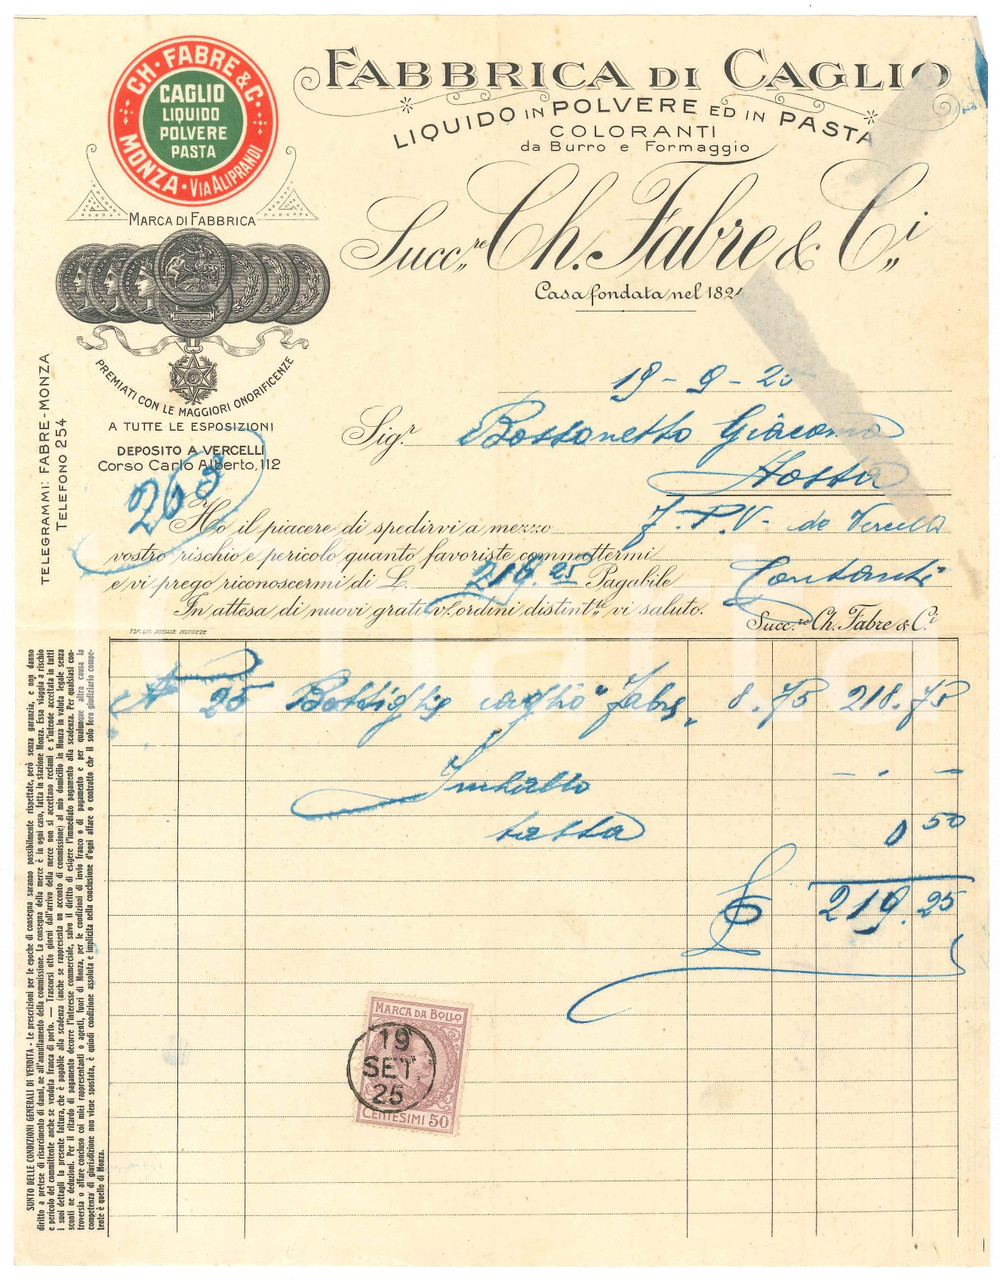 CH. FABRE & C.
MONZA · VIA ALIPRANDI
CAGLIO
LIQUIDO
POLVERE
PASTA
MARCA DI FABBRICA
PREMIATI CON LE MAGGIORI ONORIFICENZE
A TUTTE LE ESPOSIZIONI
DEPOSITO A VERCELLI
Corso Carlo Alberto, 112
TELEGRAMMI: FABRE-MONZA
TELEFONO 254
FABBRICA DI CAGLIO
LIQUIDO IN POLVERE ED IN PASTA
COLORANTI
da Burro e Formaggio
Succ.re Ch. Fabre & C.i
Casa fondata nel 182
19-9-25
Sig.r Bossonetto Giacomo
Aosta
263
Ho il piacere di spedirvi a mezzo F.P.V. da Vercelli
vostro rischio e pericolo quanto favoriste commettermi
e vi prego riconoscermi di L. 219.25 Pagabile Contanti
In attesa di nuovi grati V. ordini distint.te vi saluto.
Succ.re Ch. Fabre & C.i
N° 25 Bottiglie caglio "Fabre" 8.75 218.75
Imballo - . -
tassa 0 50
£ 219.25
MARCA DA BOLLO
19
SET
25
CENTESIMI 50
SUNTO DELLE CONDIZIONI GENERALI DI VENDITA - Le prescrizioni per le epoche di consegna saranno possibilmente rispettate, però senza garanzia, e non danno
diritto a pretese di risarcimento di danni, ne all'annullamento della commissione. La consegna della merce è in ogni caso, fatta in stazione Monza. Essa viaggia a rischio
e pericolo del committente anche se venduta franca di porto. — Trascorsi otto giorni dall'arrivo della merce non si accettano reclami e s'intende accettata in tutti
i suoi dettagli la presente fattura, che è pagabile alla scadenza (anche se rappresenta un acconto di commissione) al mio domicilio in Monza in valuta legale senza
sconti ne deduzioni. Per il ritardo di pagamento decorre l'interesse commerciale, salvo il diritto di esigere l'immediato pagamento alla scadenza. Per qualsiasi con-
troversia o affare concluso coi miei rappresentanti o agenti, fuori di Monza, per le condizioni di invio franco o di pagamento e per qualunque altra causa la
competenza di giurisdizione non viene spostata, è quindi condizione assoluta e implicita nella conclusione d'ogni affare o contratto che il solo foro giudiziario compe-
tente è quello di Monza.